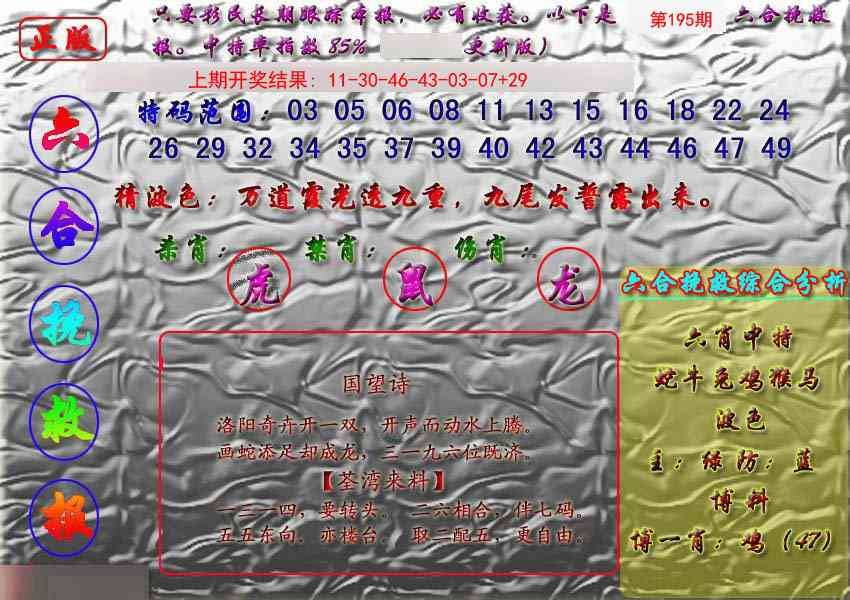 正版
只要彩民长期跟踪本报，必有收获。以下是
第195期
六合挽救
报。中特率指数85%
更新版）
上期开奖结果：11-30-46-43-03-07+29
特码范围：03 05 06 08 11 13 15 16 18 22 24
26 29 32 34 35 37 39 40 42 43 44 46 47 49
猜波色：万道霞光透九重，九尾发誓露出来。
杀肖：虎
禁肖：鼠
伤肖：龙
六
合
挽
救
报
国望诗
洛阳奇卉开一双，开声而动水上腾。
画蛇添足却成龙，三一九六位既济。
【荃湾来料】
一三一四，要转头。 二六相合，伴七码。
五五东向，亦楼台。 取二配五，更自由。
六合挽救综合分析
六肖中特
蛇牛兔鸡猴马
波色
主：绿防：蓝
博料
博一肖：鸡（47）